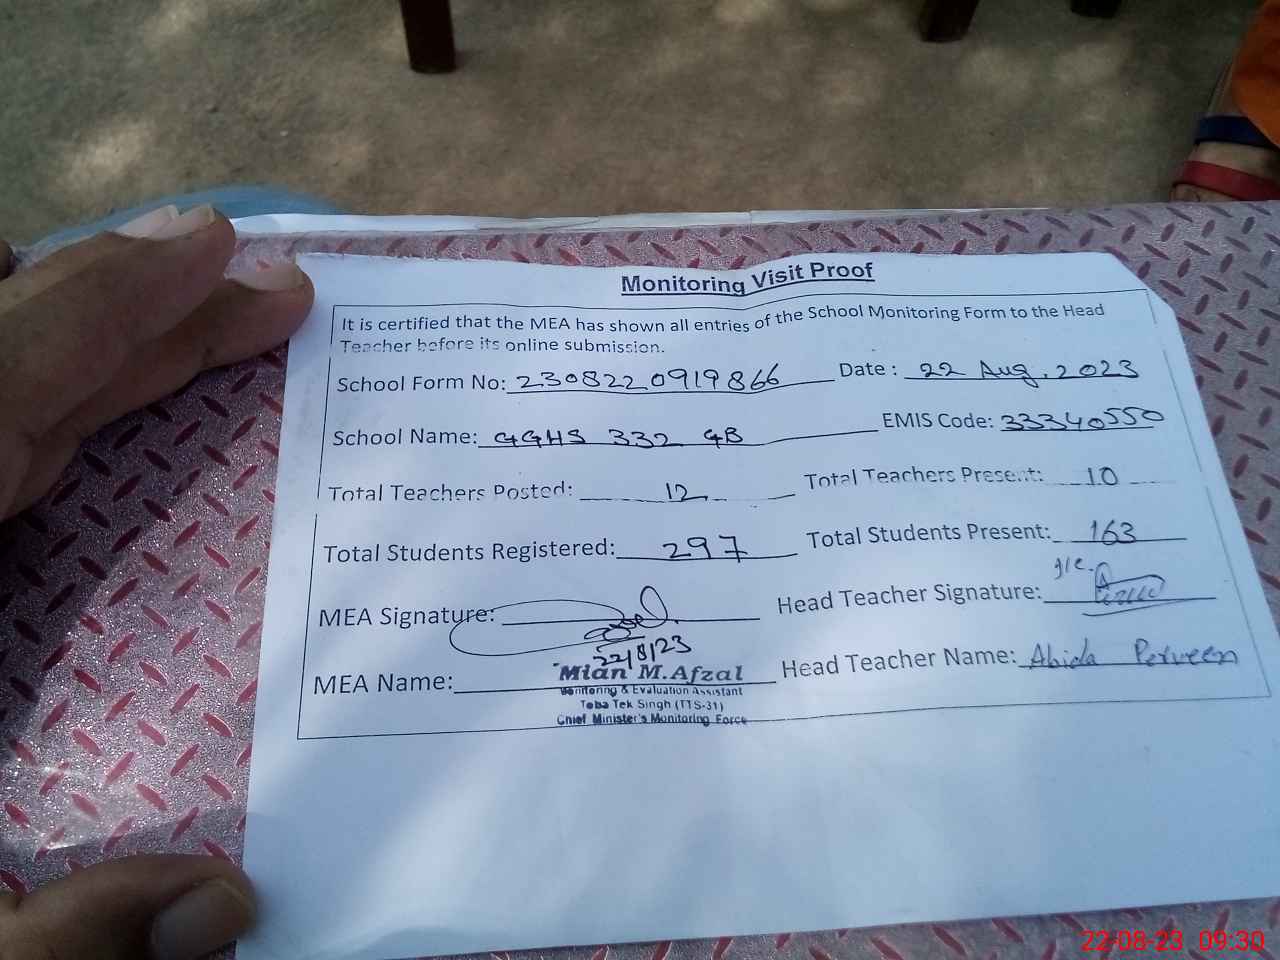 Monitoring Visit Proof
It is certified that the MEA has shown all entries of the School Monitoring Form to the Head
Teacher before its online submission.
School Form No: 2308220919866 Date : 22 Aug, 2023
School Name: GGHS 332 GB EMIS Code: 33340550
Total Teachers Posted: 12 Total Teachers Present: 10
Total Students Registered: 297 Total Students Present: 163
MEA Signature: Head Teacher Signature: I/C.
22/8/23
MEA Name: Mian M.Afzal Head Teacher Name: Abida Perveen
Monitoring & Evaluation Assistant
Toba Tek Singh (TTS-31)
Chief Minister's Monitoring Force
22-08-23 09:30